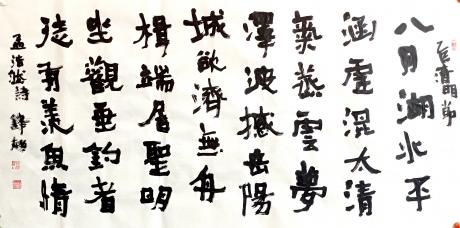 清明節
八月湖水平
涵虛混太清
氣蒸雲夢
澤波撼岳陽
城欲濟無舟
楫端居聖明
坐觀垂釣者
徒有羨魚情
孟浩然詩